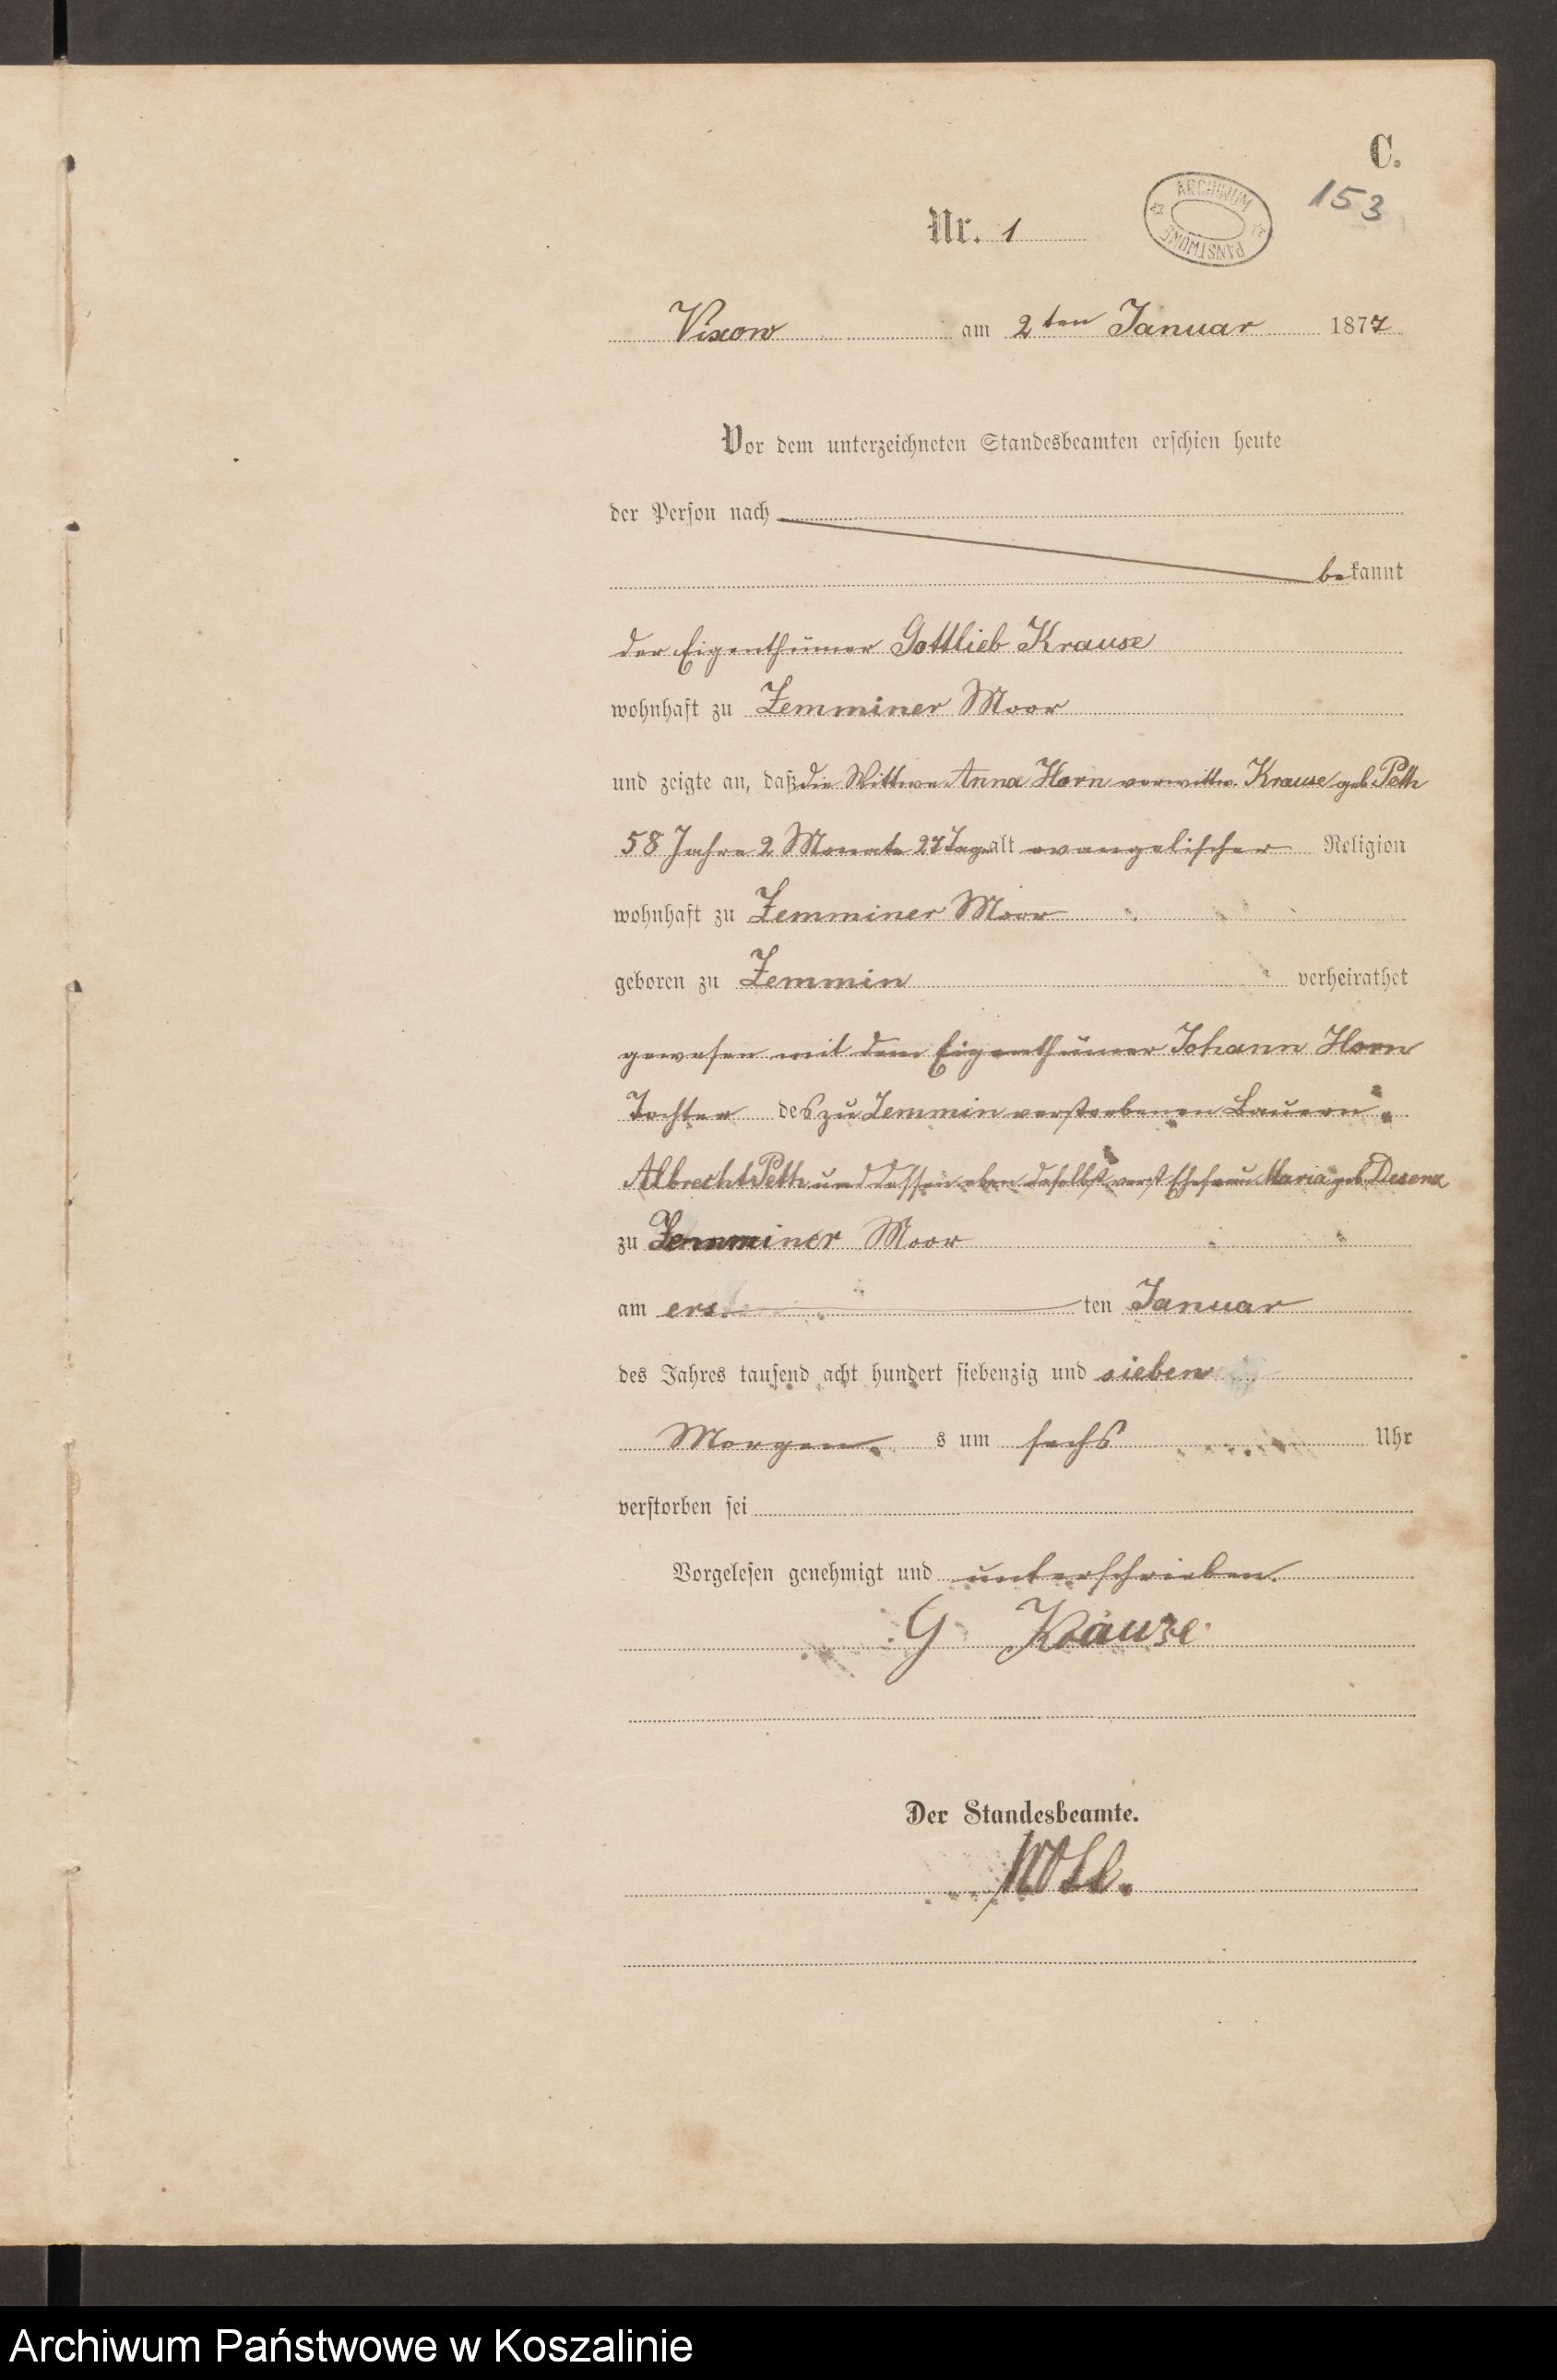 C.
153
ARCHIWUM PAŃSTWOWE
Nr. 1
Vixow am 2ten Januar 1877
Vor dem unterzeichneten Standesbeamten erschien heute
der Person nach
bekannt
der Eigenthümer Gottlieb Krause
wohnhaft zu Zemminer Moor
und zeigte an, daß die Wittwe Anna Horn verwittw. Krause geb. Peth
58 Jahre 2 Monate 27 Tage alt evangelischer Religion
wohnhaft zu Zemminer Moor
geboren zu Zemmin verheirathet
gewesen mit dem Eigenthümer Johann Horn
Tochter des zu Zemmin verstorbenen Bauern
Albrecht Peth und dessen eben daselbst verst Ehefrau Maria geb
zu Zemminer Moor
am ers ten Januar
des Jahres tausend acht hundert siebenzig und sieben
Morgen s um sechs Uhr
verstorben sei
Vorgelesen genehmigt und unterschrieben.
G Krause
Der Standesbeamte.
Archiwum Państwowe w Koszalinie